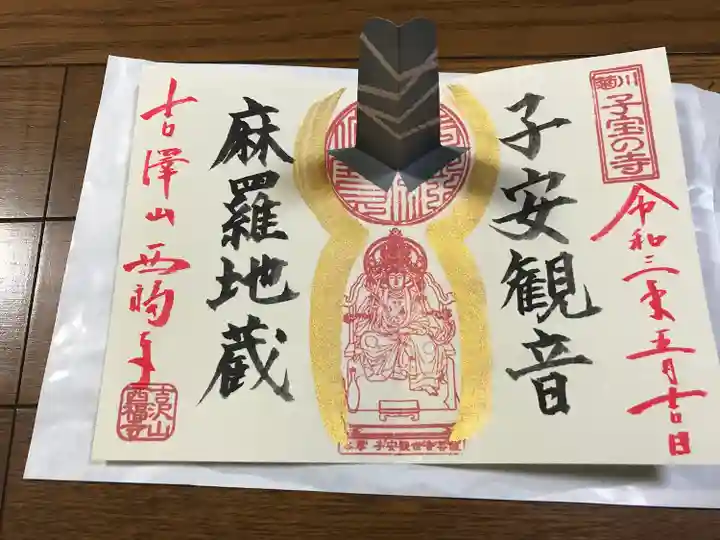 菊川
子宝の寺
令和三年五月吉日
子安観音
麻羅地蔵
子安観世音菩薩
吉澤山西福寺
吉沢山
西福寺